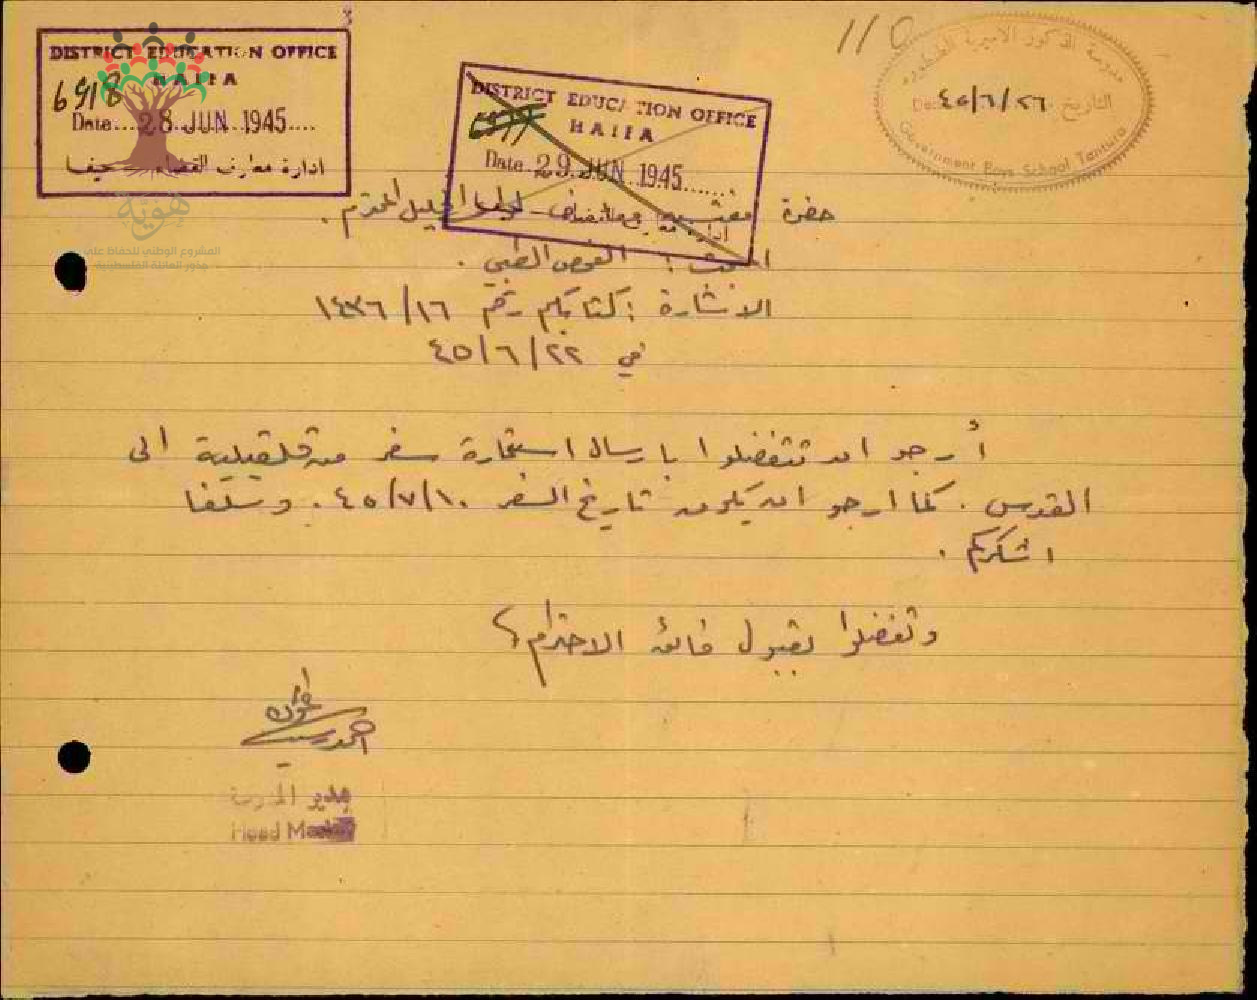 3
DISTRICT EDUCATION OFFICE
HAIFA
6918
Date....28.JUN.1945....
ادارة معارف القضاء حيفا
هوية
المشروع الوطني للحفاظ على
جذور العائلة الفلسطينية
DISTRICT EDUCATION OFFICE
HAIFA
Date.29.JUN 1945......
110
مدرسة الذكور الاميرية الطنطوره
التاريخ ٤٥/٦/٢٦
Government Boys School Tantura
حضرة مفتش معارف لواء الجليل المحترم .
البحث : الفحص الطبي .
الاشارة : كتابكم رقم ١٤٣٦/١٦
في ٤٥/٦/٢٢
أرجو ان تتفضلوا بارسال استمارة سفر من قلقيلية الى
القدس . كما ارجو ان يكون تاريخ السفر ٤٥/٧/١٠ . وسلفا
اشكركم .
وتفضلوا بقبول فائق الاحترام
مدير المدرسة
Head Master